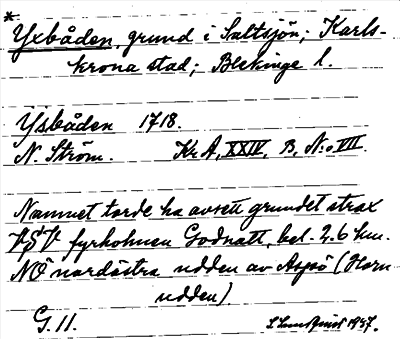 *
Yxbåden, grund i Saltsjön; Karls-
krona stad; Blekinge l.
Ysbåden 1718.
N. Ström. Kr A, XXIV, B, N:o VII.
Namnet torde ha avsett grundet strax
VSV fyrholmen Godnatt, bel. 2,6 km.
NÖ nordöstra udden av Aspö (Horn
udden).
G. 11.
1937.